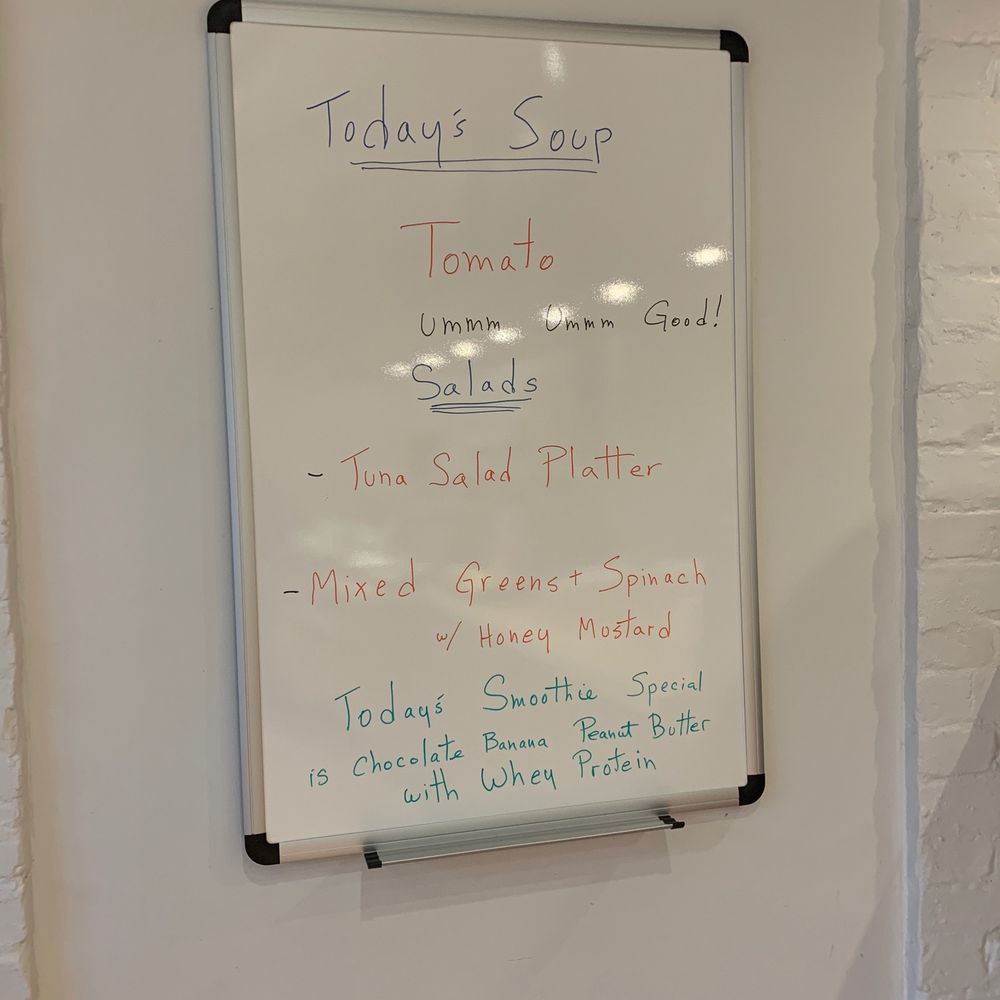 Today's Soup
Tomato
Ummm Ummm Good!
Salads
- Tuna Salad Platter
- Mixed Greens + Spinach
w/ Honey Mustard
Today's Smoothie Special
is Chocolate Banana Peanut Butter
with Whey Protein